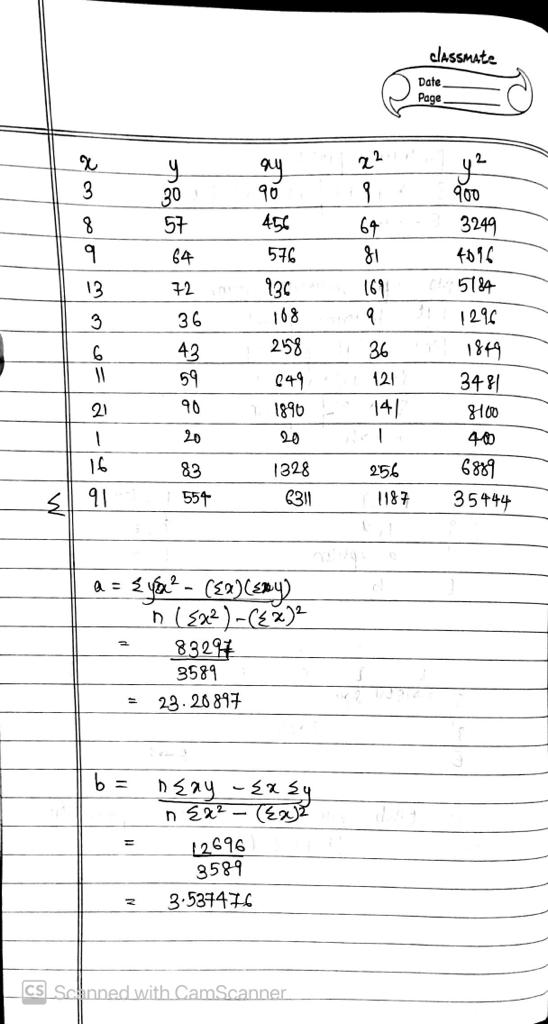 classmate
Date
Page
x y xy x² y²
3 30 90 9 900
8 57 456 64 3249
9 64 576 81 4096
13 72 936 169 5184
3 36 108 9 1296
6 43 258 36 1849
11 59 649 121 3481
21 90 1890 141 8100
1 20 20 1 400
16 83 1328 256 6889
Σ 91 554 6311 1187 35444
a = Σy Σx² - (Σx)(Σxy)
n (Σx²) - (Σx)²
= 83297
3589
= 23.20897
b = nΣxy - Σx Σy
n Σx² - (Σx)²
= 12696
3589
= 3.537476
CS Scanned with CamScanner